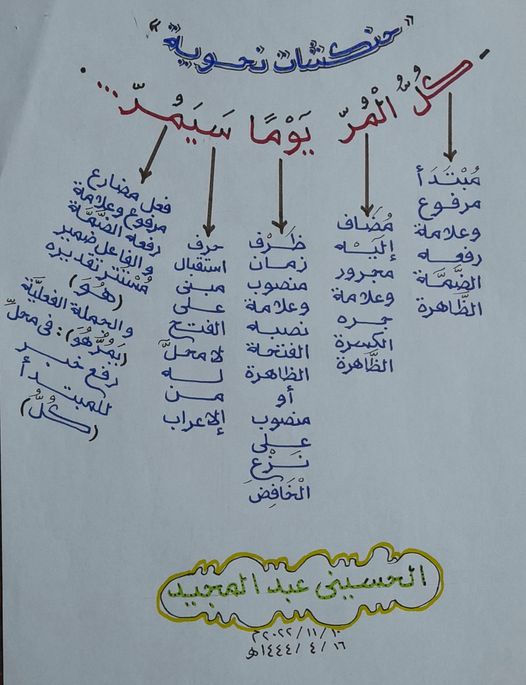 "حنكشات نحوية"
- كُلُّ الْمُرِّ يَوْمًا سَيَمُرّ....
مُبْتَدَأ
مرفوع
وعلامة
رفعه
الضَّمَّة
الظَّاهرة
مُضَاف
إِلَيْه
مجرور
وعلامة
جره
الكسرة
الظَّاهرة
ظَرْف
زمان
منصوب
وعلامة
نصبه
الفتحة
الظاهرة
أو
منصوب
على
نَزْع
الْخَافِض
حرف
استقبال
مبنى
على
الفتح
لا محلَّ
له
من
الإعراب
فعل مضارع
مرفوع وعلامة
رفعه الضَّمَّة
والفاعل ضمير
مُسْتَتر تقديره
(هُوَ)
والجملة الفعليَّة
(يَمُرّ هُوَ): فى محلِّ
رفع خبر
للمبتدأ
(كُلُّ)
الحسينى عبد المجيد
٢٠٢٢/١١/١٠م
١٤٤٤/٤/١٦هـ